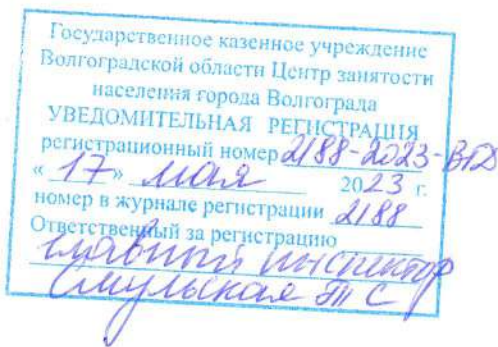 Государственное казенное учреждение
Волгоградской области Центр занятости
населения города Волгограда
УВЕДОМИТЕЛЬНАЯ РЕГИСТРАЦИЯ
регистрационный номер 2188-2023-ВГД
« 17 » мая 2023 г.
номер в журнале регистрации 2188
Ответственный за регистрацию
главный инспектор
Смульская Т С